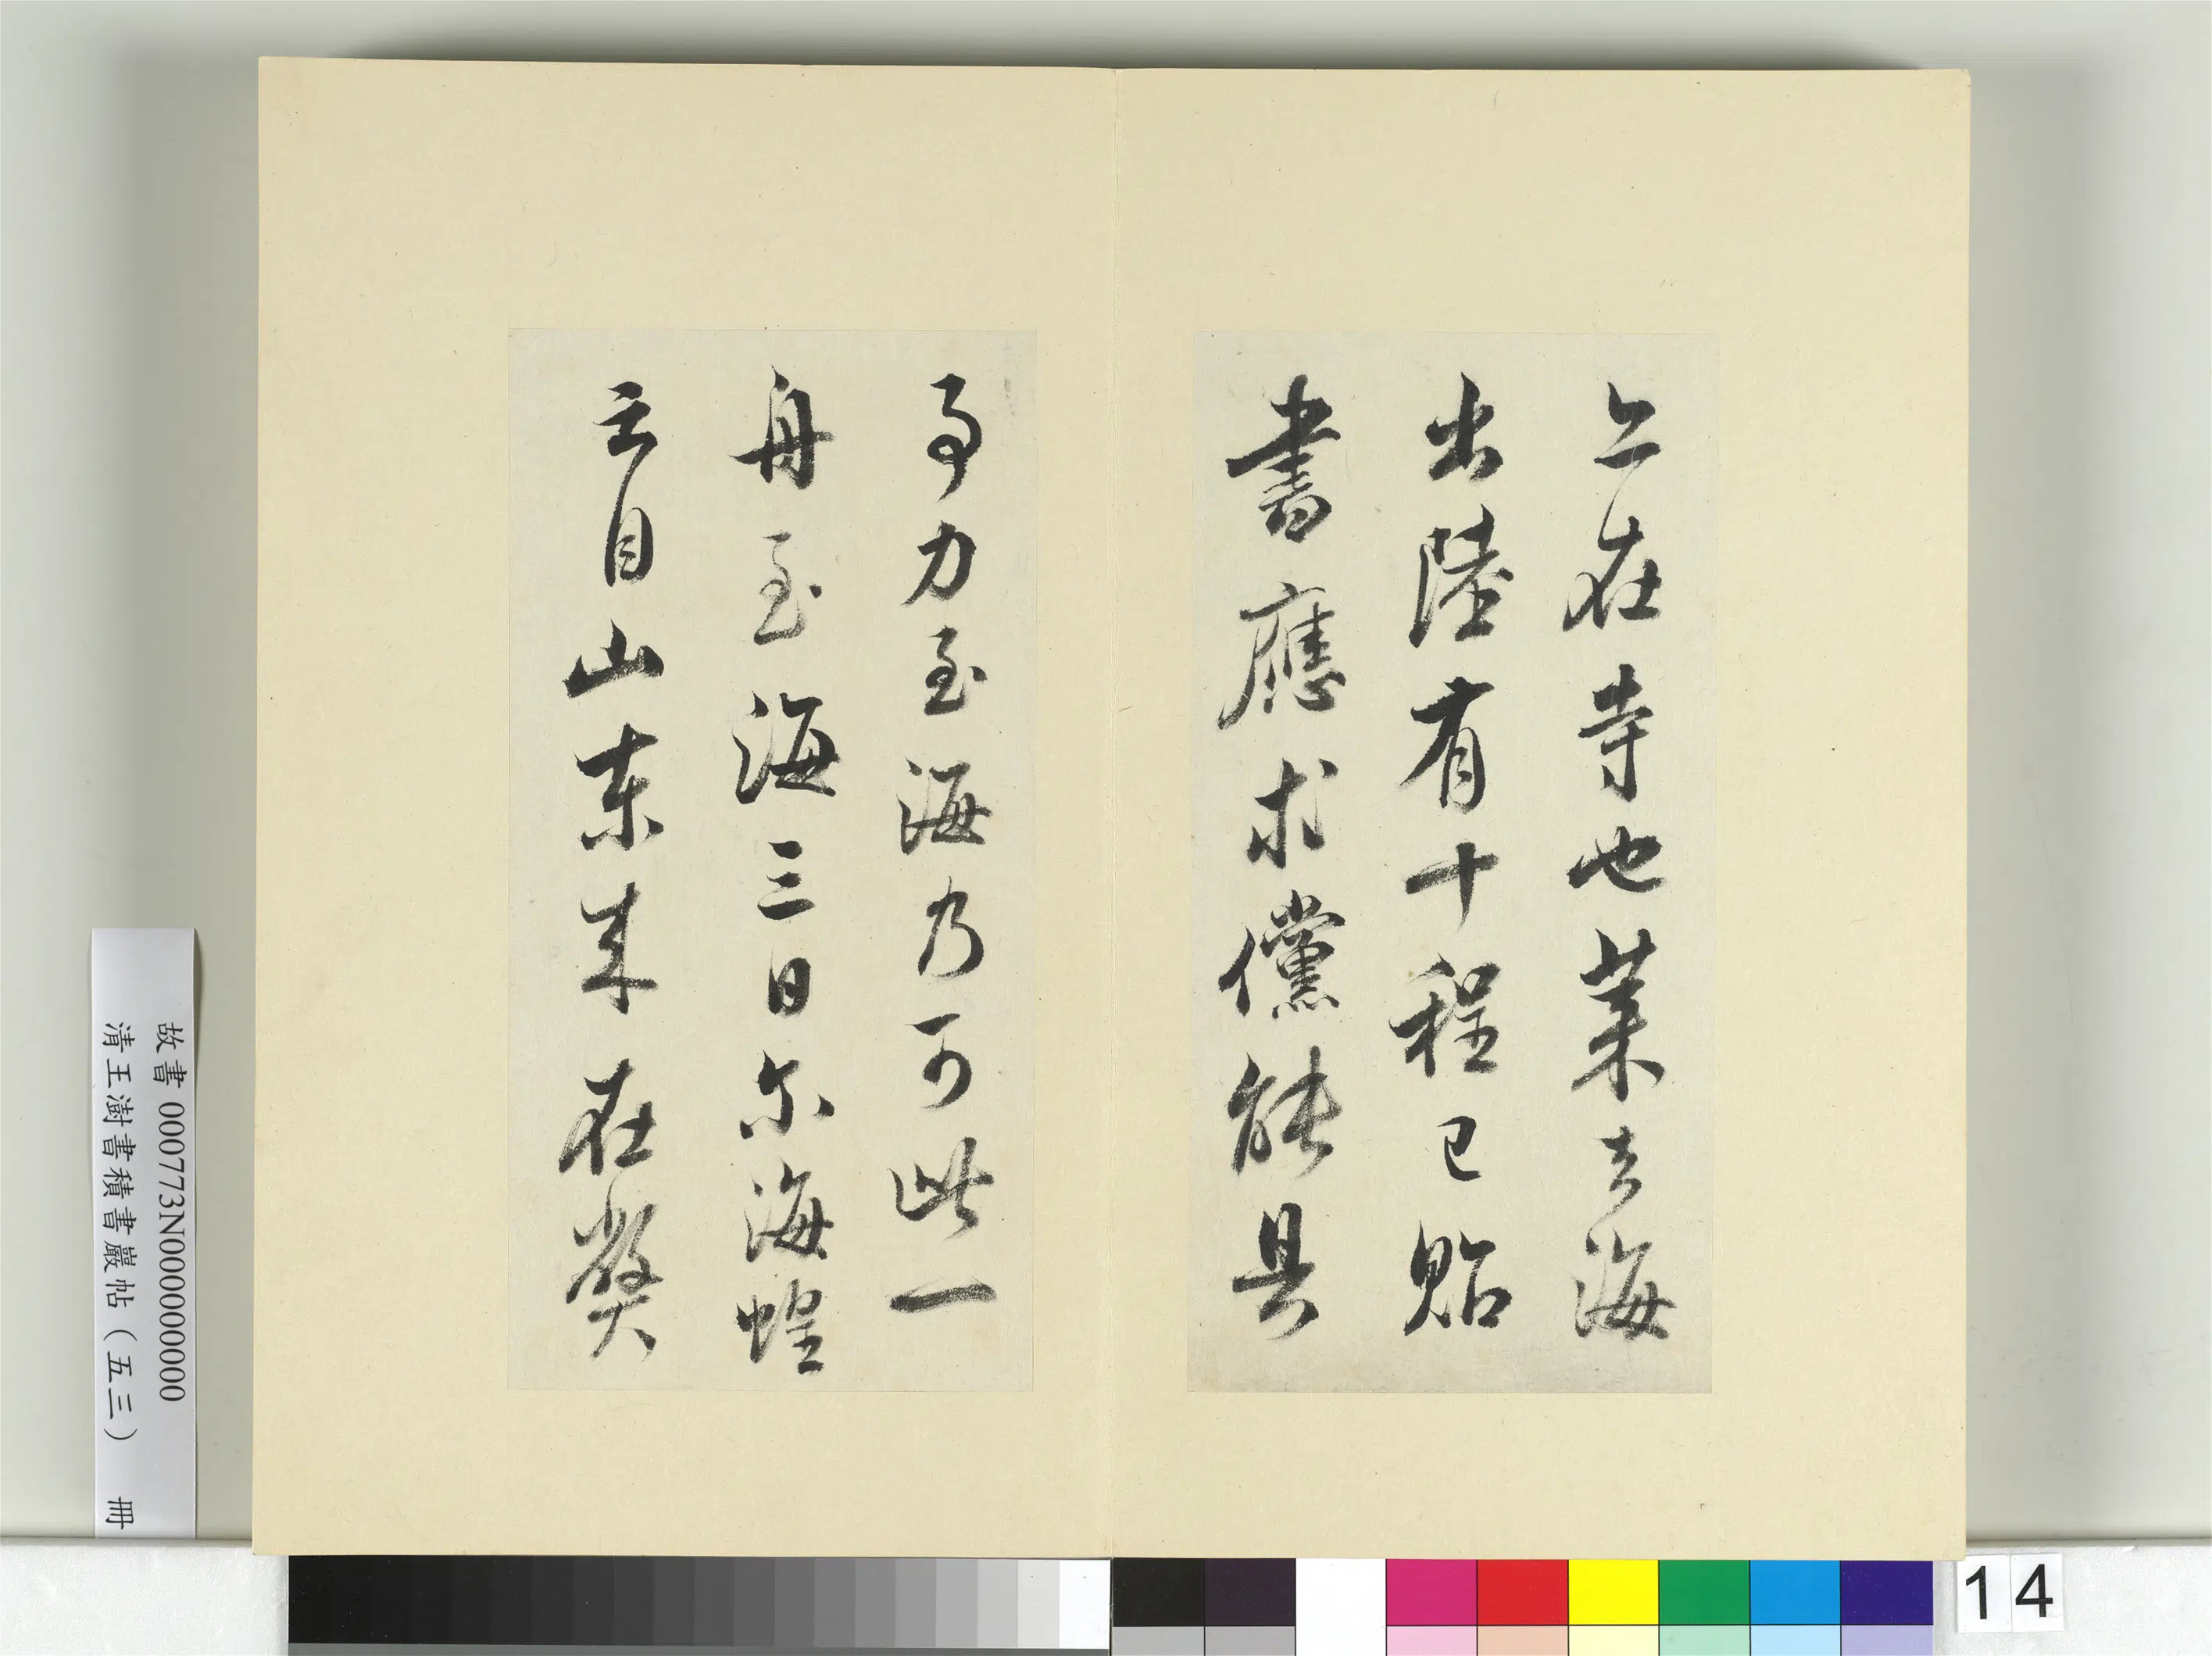 上在寺也萊去海
出陸有十程已貽
書應求儻能具
事力至海乃可此一
舟至海三日尔海蝗
云自山東来在弊
故書 000773N000000000
清王澍書積書巖帖（五三） 冊
14